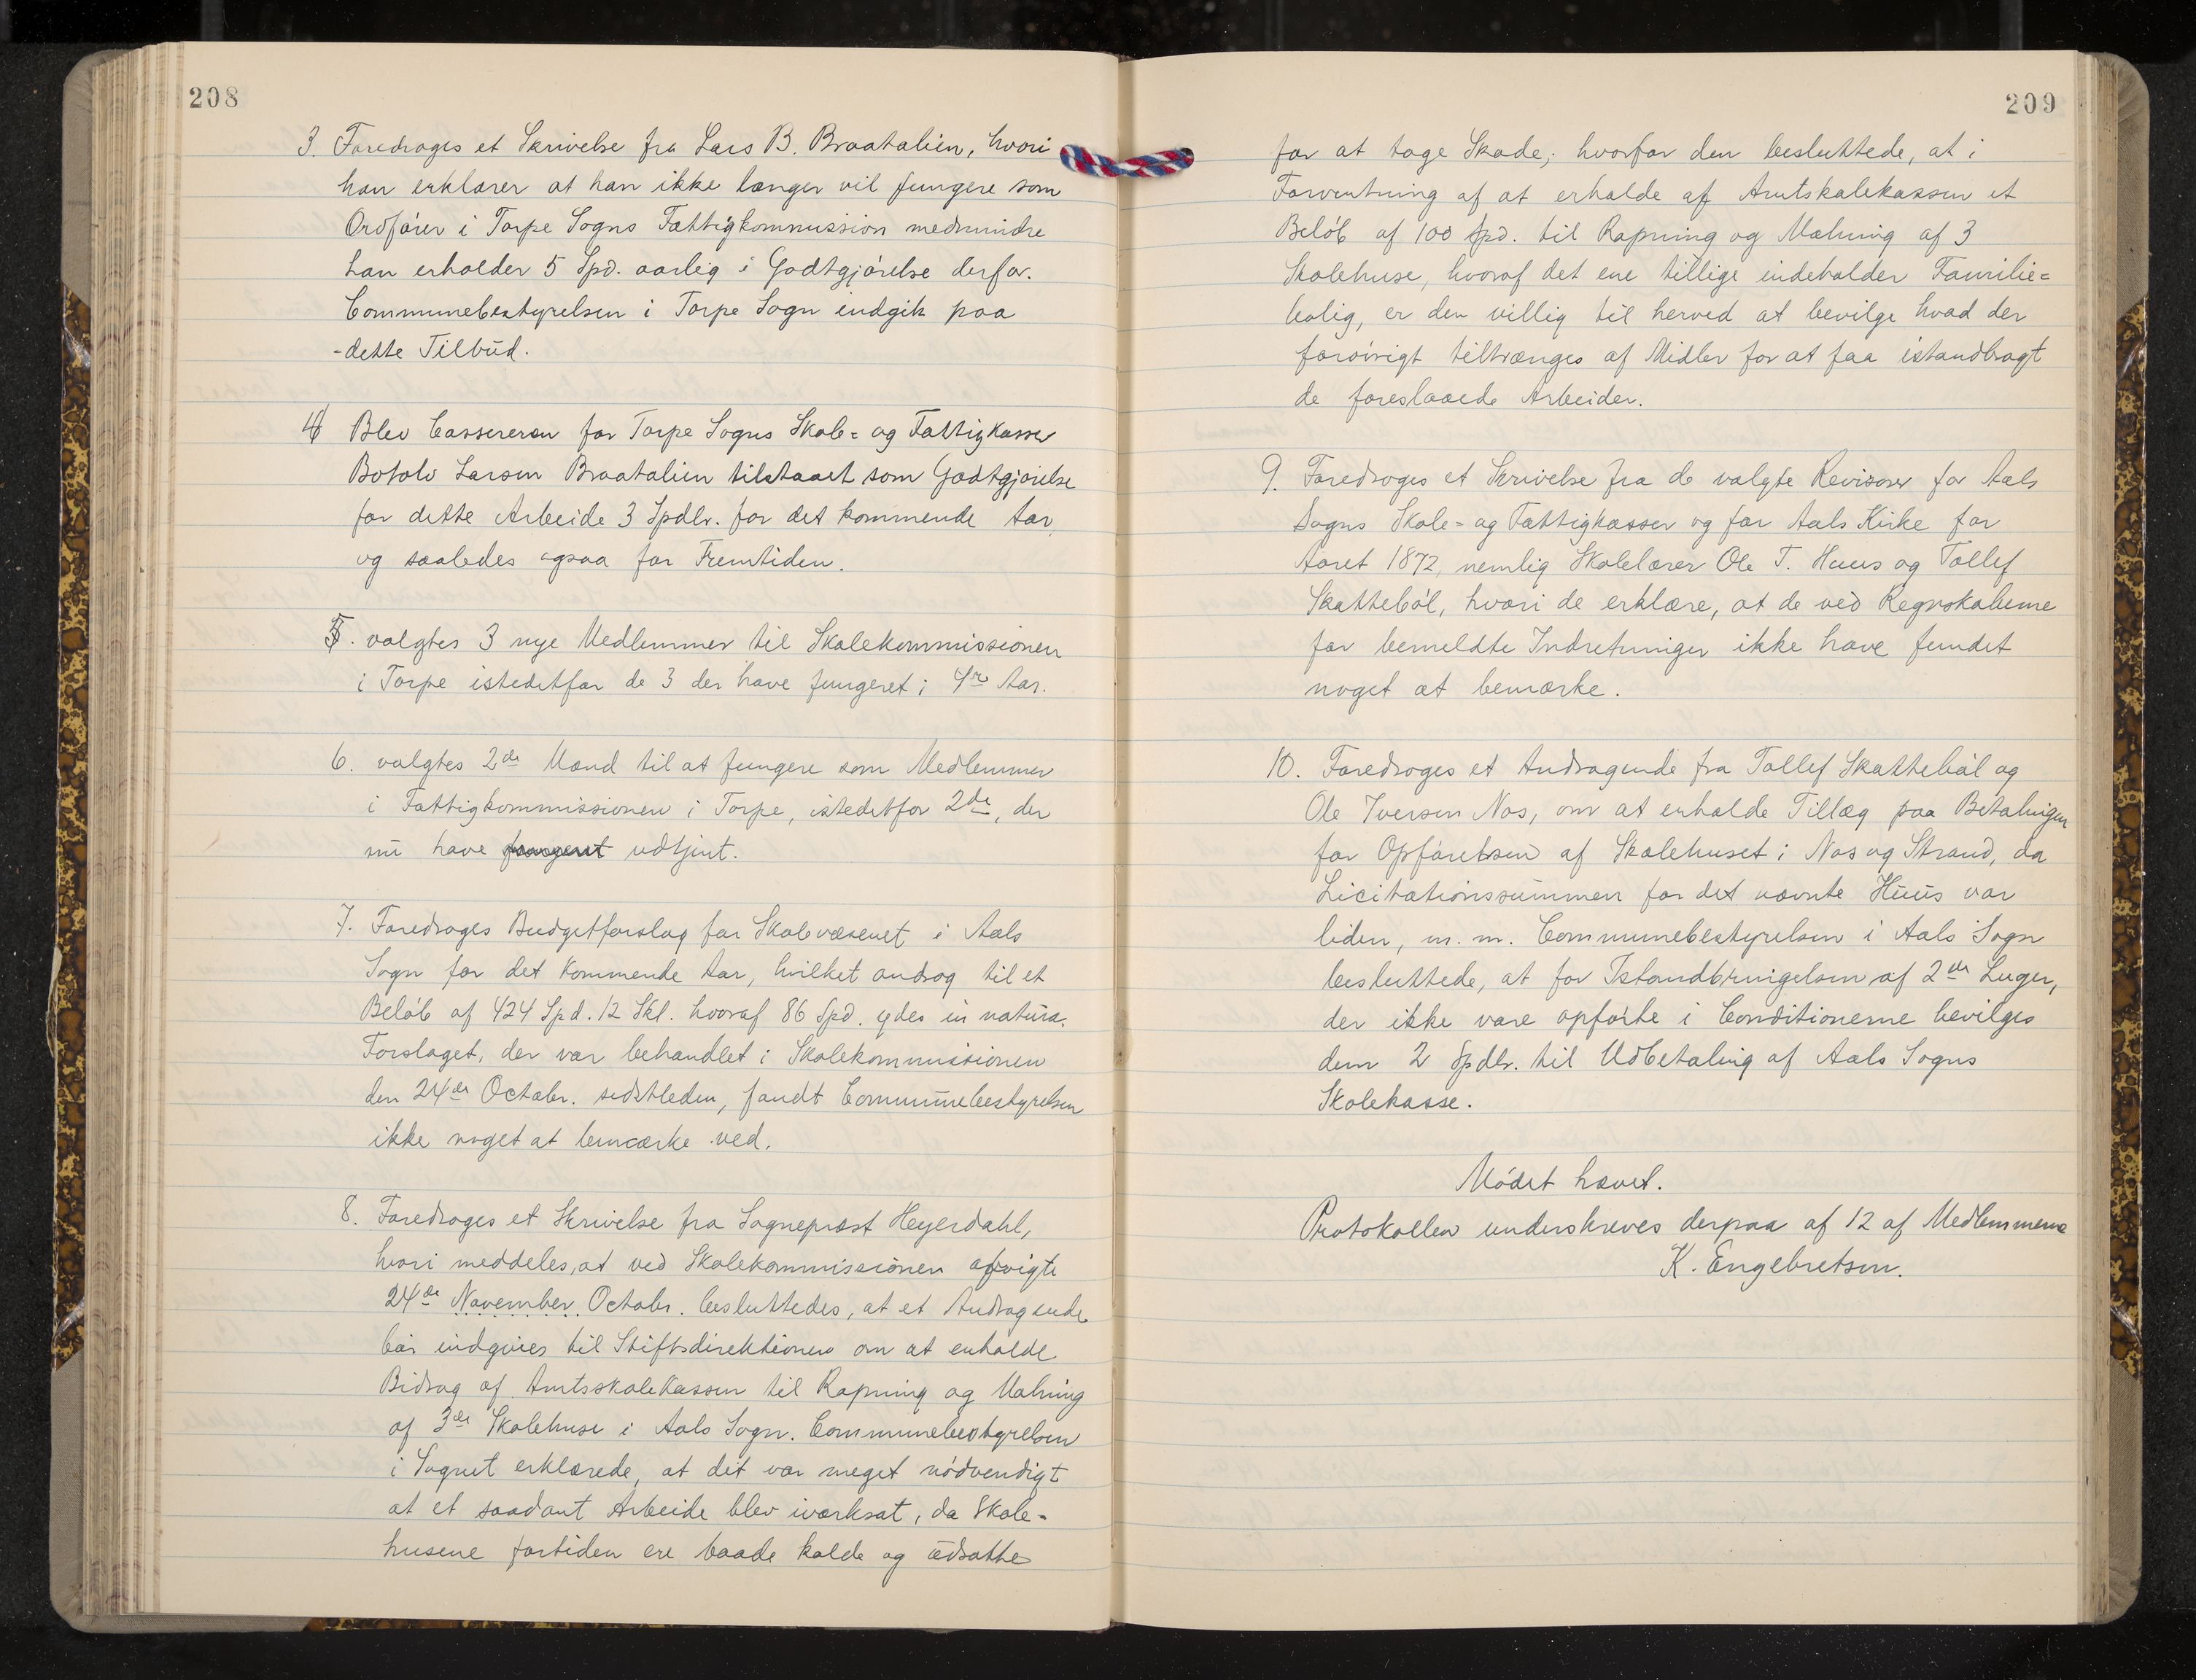 208
3. Foredroges et Skrivelse fra Lars B. Braatalien, hvori
han erklærer at han ikke længer vil fungere som
Ordfører i Torpe Sogns Fattigkommission medmindre
han erholder 5 Spd. aarlig i Godtgjørelse derfor.
Communebestyrelsen i Torpe Sogn indgik paa
-dette Tilbud.
4 Blev Cassereren for Torpe Sogns Skole= og Fattigkasser
Botolv Larsen Braatalien tilstaaet som Godtgjørelse
for dette Arbeide 3 Spdlr. for det kommende Aar,
og saaledes ogsaa for Fremtiden.
5. valgtes 3 nye Medlemmer til Skolekommissionen
i Torpe istedetfor de 3 der have fungeret i 4re Aar.
6. valgtes 2de Mænd til at fungere som Medlemmer
i Fattigkommissionen i Torpe, istedetfor 2de, der
nu have fungeret udtjent.
7. Foredroges Budgetforslag for Skolevæsenet i Aals
Sogn for det kommende Aar, hvilket androg til et
Beløb af 424 Spd. 12 Skl. hvoraf 86 Spd. ydes in natura.
Forslaget, der var behandlet i Skolekommissionen
den 24de Octobr. sidstleden, fandt Communebestyrelsen
ikke noget at bemærke ved.
8. Foredroges et Skrivelse fra Sogneprast Heyerdahl,
hvori meddeles, at ved Skolekommissionen afvigte
24de November Octobr. besluttedes, at et Andragende
bør indgives til Stiftsdirektionen om at erholde
Bidrag af Amtsskolekassen til Rapning og Malning
af 3de Skolehuse i Aals Sogn. Communebestyrelsen
i Sognet erklærede, at det var meget nødvendigt
at et saadant Arbeide blev iværksat, da Skole-
husene fortiden ere baade kolde og udsatte
209
for at tage Skade; hvorfor den besluttede, at i
Forventning af at erholde af Amtskolekassen et
Beløb af 100 Spd. til Rapning og Malning af 3
Skolehuse, hvoraf det ene tillige indeholder Familie=
bolig, er den villig til herved at bevilge hvad der
forøvrigt tiltrænges af Midler for at faa istandbragt
de foreslaaede Arbeider.
9. Foredroges et Skrivelse fra de valgte Revisorer for Aals
Sogns Skole= og Fattigkasser og for Aals Kirke for
Aaret 1872, nemlig Skolelærer Ole T. Huus og Tollef
Skattebøl, hvori de erklære, at de ved Regnskaberne
for bemeldte Indretninger ikke have fundet
noget at bemærke.
10. Foredroges et Andragende fra Tollef Skattebøl og
Ole Iversen Nos, om at erholde Tillæg paa Betalingen
for Opførelsen af Skolehuset i Nos og Strand, da
Licitationssummen for det nævnte Huus var
liden, m. m. Communebestyrelsen i Aals Sogn
besluttede, at for Istandbringelsen af 2de Luger,
der ikke vare opførte i Conditionerne bevilges
dem 2 Spdlr. til Udbetaling af Aals Sogns
Skolekasse.
Mødet hævet.
Protokollen underskreves derpaa af 12 af Medlemmerne
K. Engebretsen.